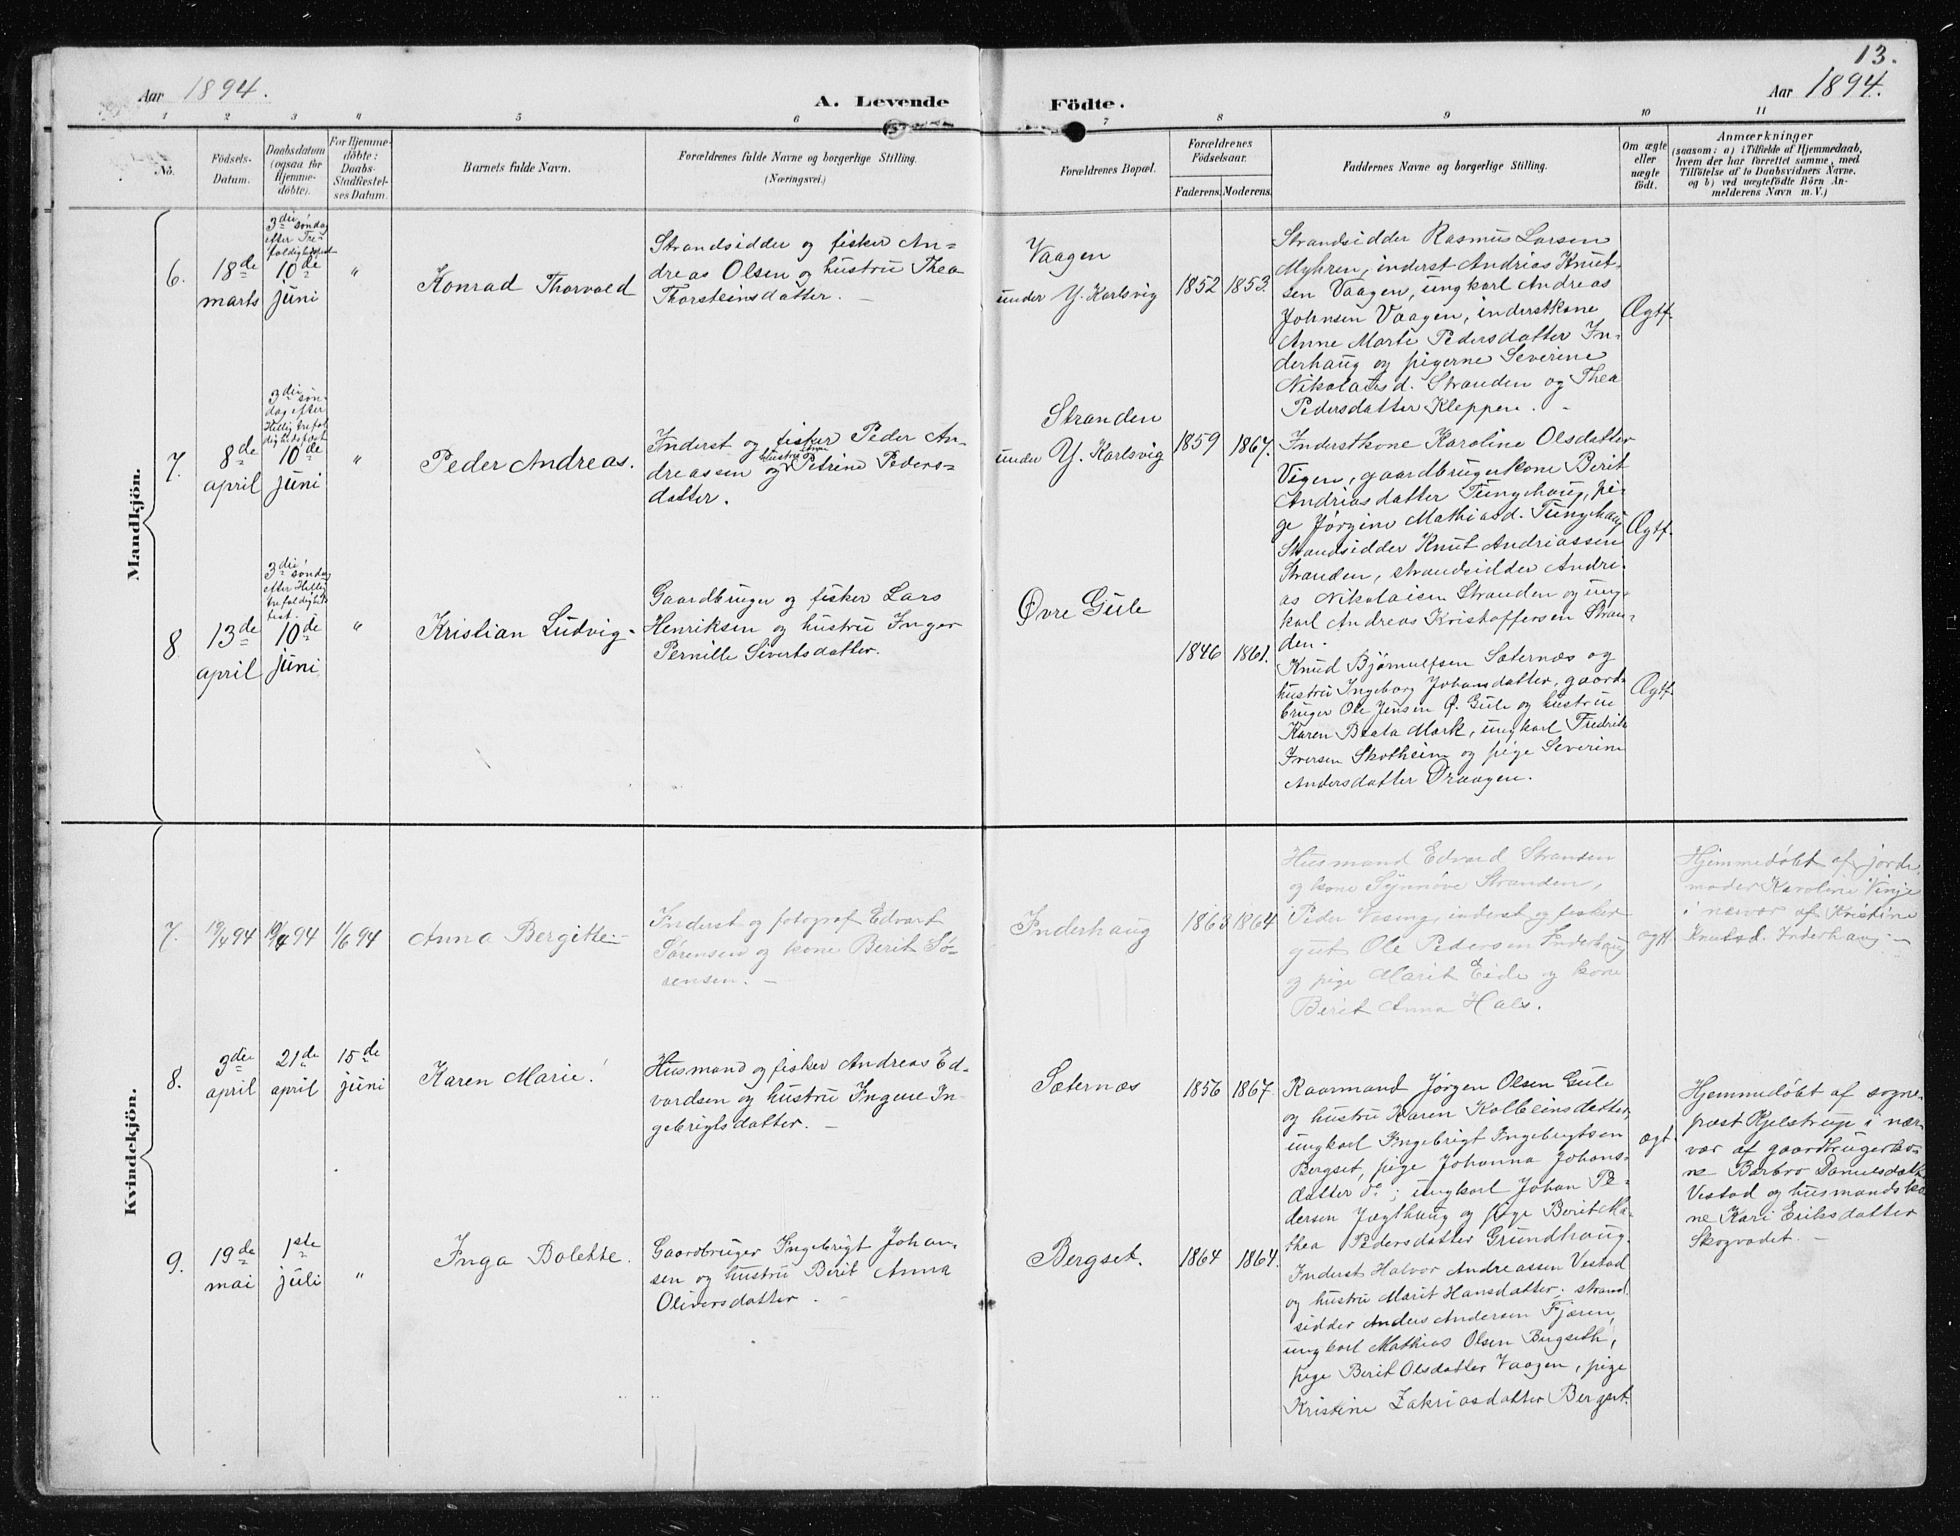 13.
Aar 1894.
A. Levende Födte.
Aar 1894.
1 2 3 4 5 6 7 8 9 10 11
No.
Födsels-
Datum.
Daabsdatum
(ogsaa for
Hjemme-
döbte).
For Hjemme-
döbte:
Daabs-
Stadfæstel-
ses Datum.
Barnets fulde Navn.
Forældrenes fulde Navne og borgerlige Stilling.
(Næringsvei.)
Forældrenes Bopæl.
Forældrenes
Födselsaar.
Faderens. Moderens.
Faddernes Navne og borgerlige Stilling.
Om ægte
eller
uægte
födt.
Anmærkninger
(saasom: a) i Tilfælde af Hjemmedaab,
hvem der har forrettet samme, med
Tilföielse af to Daabsvidners Navne.
og b) ved uægtefödte Börn An-
melderens Navn m. V.)
Mandkjön.
6.
18de
marts
3die søndag
efter Tre-
foldighedsfest
10de
juni
"
Konrad Thorvald
Strandsidder og fisker An-
dreas Olsen og hustru Thea
Thorsteinsdatter. —
Vaagen
under Y. Karlsvig
1852
1853.
Strandsidder Rasmus Larsen
Myhren, inderst Andrias Knut-
sen Vaagen, ungkarl Andreas
Johnsen Vaagen, inderstkone
Anne Marte Pedersdatter In-
derhaug og pigerne Severine
Nikolaisd. Stranden og Thea
Pedersdatter Kleppen. -
Ægtf.
7.
8de
april
3die søn-
dag efter
Hellig trefol
dighedsfest
10de
juni
"
Peder Andreas.
Inderst og fisker Peder An-
dreassen og hustru Petrine Peders-
datter.
Stranden
under Y. Karlsvig
1859
1867.
Inderstkone Karoline Olsdatter
Vigen, gaardbrugerkone Berit
Andriasdatter Tungehaug, pi-
ge Jørgine Mathiasd. Tungehaug
Strandsidder Knut Andriassen
Stranden, strandsidder Andre-
as Nikolaisen Stranden og ung-
karl Andreas Kristoffersen Stran-
den.
Ægtf.
8
13de
april
3die søndag
efter Hellig
trefoldigheds
fest.
10de
juni
"
Kristian Ludvig -
Gaardbruger og fisker Lars
Henriksen og hustru Inger
Pernille Sivertsdatter.
Øvre Gule
1846
1861.
Knud Bjørnulfsen Sæternæs og
hustru Ingeborg Johansdatter, gaard-
bruger Ole Jensen Ø. Gule og hustrue
Karen Beata Mork, ungkarl Fredrik
Iversen Skotheim og pige Severine
Andersdatter Draagen.
Ægtf.
Kvindekjön.
7.
4 94
4 94
1/6 94
Anna Bergitte -
Inderst og fotograf Edvart
Sørensen og kone Berit Sø-
rensen. -
Inderhaug
1863
1864
Husmand Edvard Stranden
og kone Synnøve Stranden,
Peder inderst og fisker
gut Ole Pedersen Inderhaug
og pige Marit Eide og kone
Berit Anna Hals.
ægtf
Hjemmedøbt af jorde
moder Karoline Vinje
i nærvær af Kristine
Knutsd. Inderhaug. —
8.
3die
april
21de
april
15de
juni
Karen Marie.
Husmand og fisker Andreas Ed-
vardsen og hustru In-
gebrigtsdatter. —
Sæternæs
1856
1867.
Kaarmand Jørgen Olsen Gule
og hustru Karen Kolbeinsdatter,
ungkarl Ingebrigt Ingebrigtsen
Bergset, pige Johanna Johans-
datter do; ungkarl Johan Pe-
dersen Jægthaug og pige Berit Ma-
thea Pedersdatter Grundhaug.
ægt.
Hjemmedøbt af sogne-
præst Kjelstrup i nær-
vær af gaardbrugerko-
ne Barbro Danielsdatter
Vestad og husmandsko
ne Kari Eriksdatter
Skogvadet. —
9.
19de
mai
1ste
juli
"
Inga Bolette.
Gaardbruger Ingebrigt Johan-
sen og hustru Berit Anna
Oliversdatter. —
Bergset.
1864
1864.
Inderst Halvor Andreassen Vestad
og hustru Marit Hansdatter. strand
sidder Anders Andersen Fjæren,
ungkarl Mathias Olsen Bugseth,
pige Berit Olsdatter Vaagen, pige
Kristine Zakriasdatter Bergset.